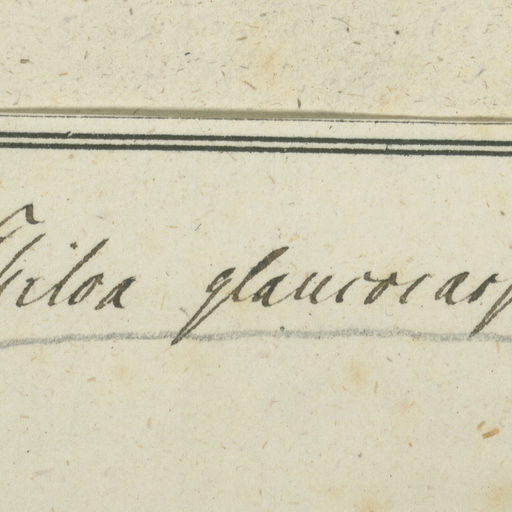 Thiloa glaucocarp